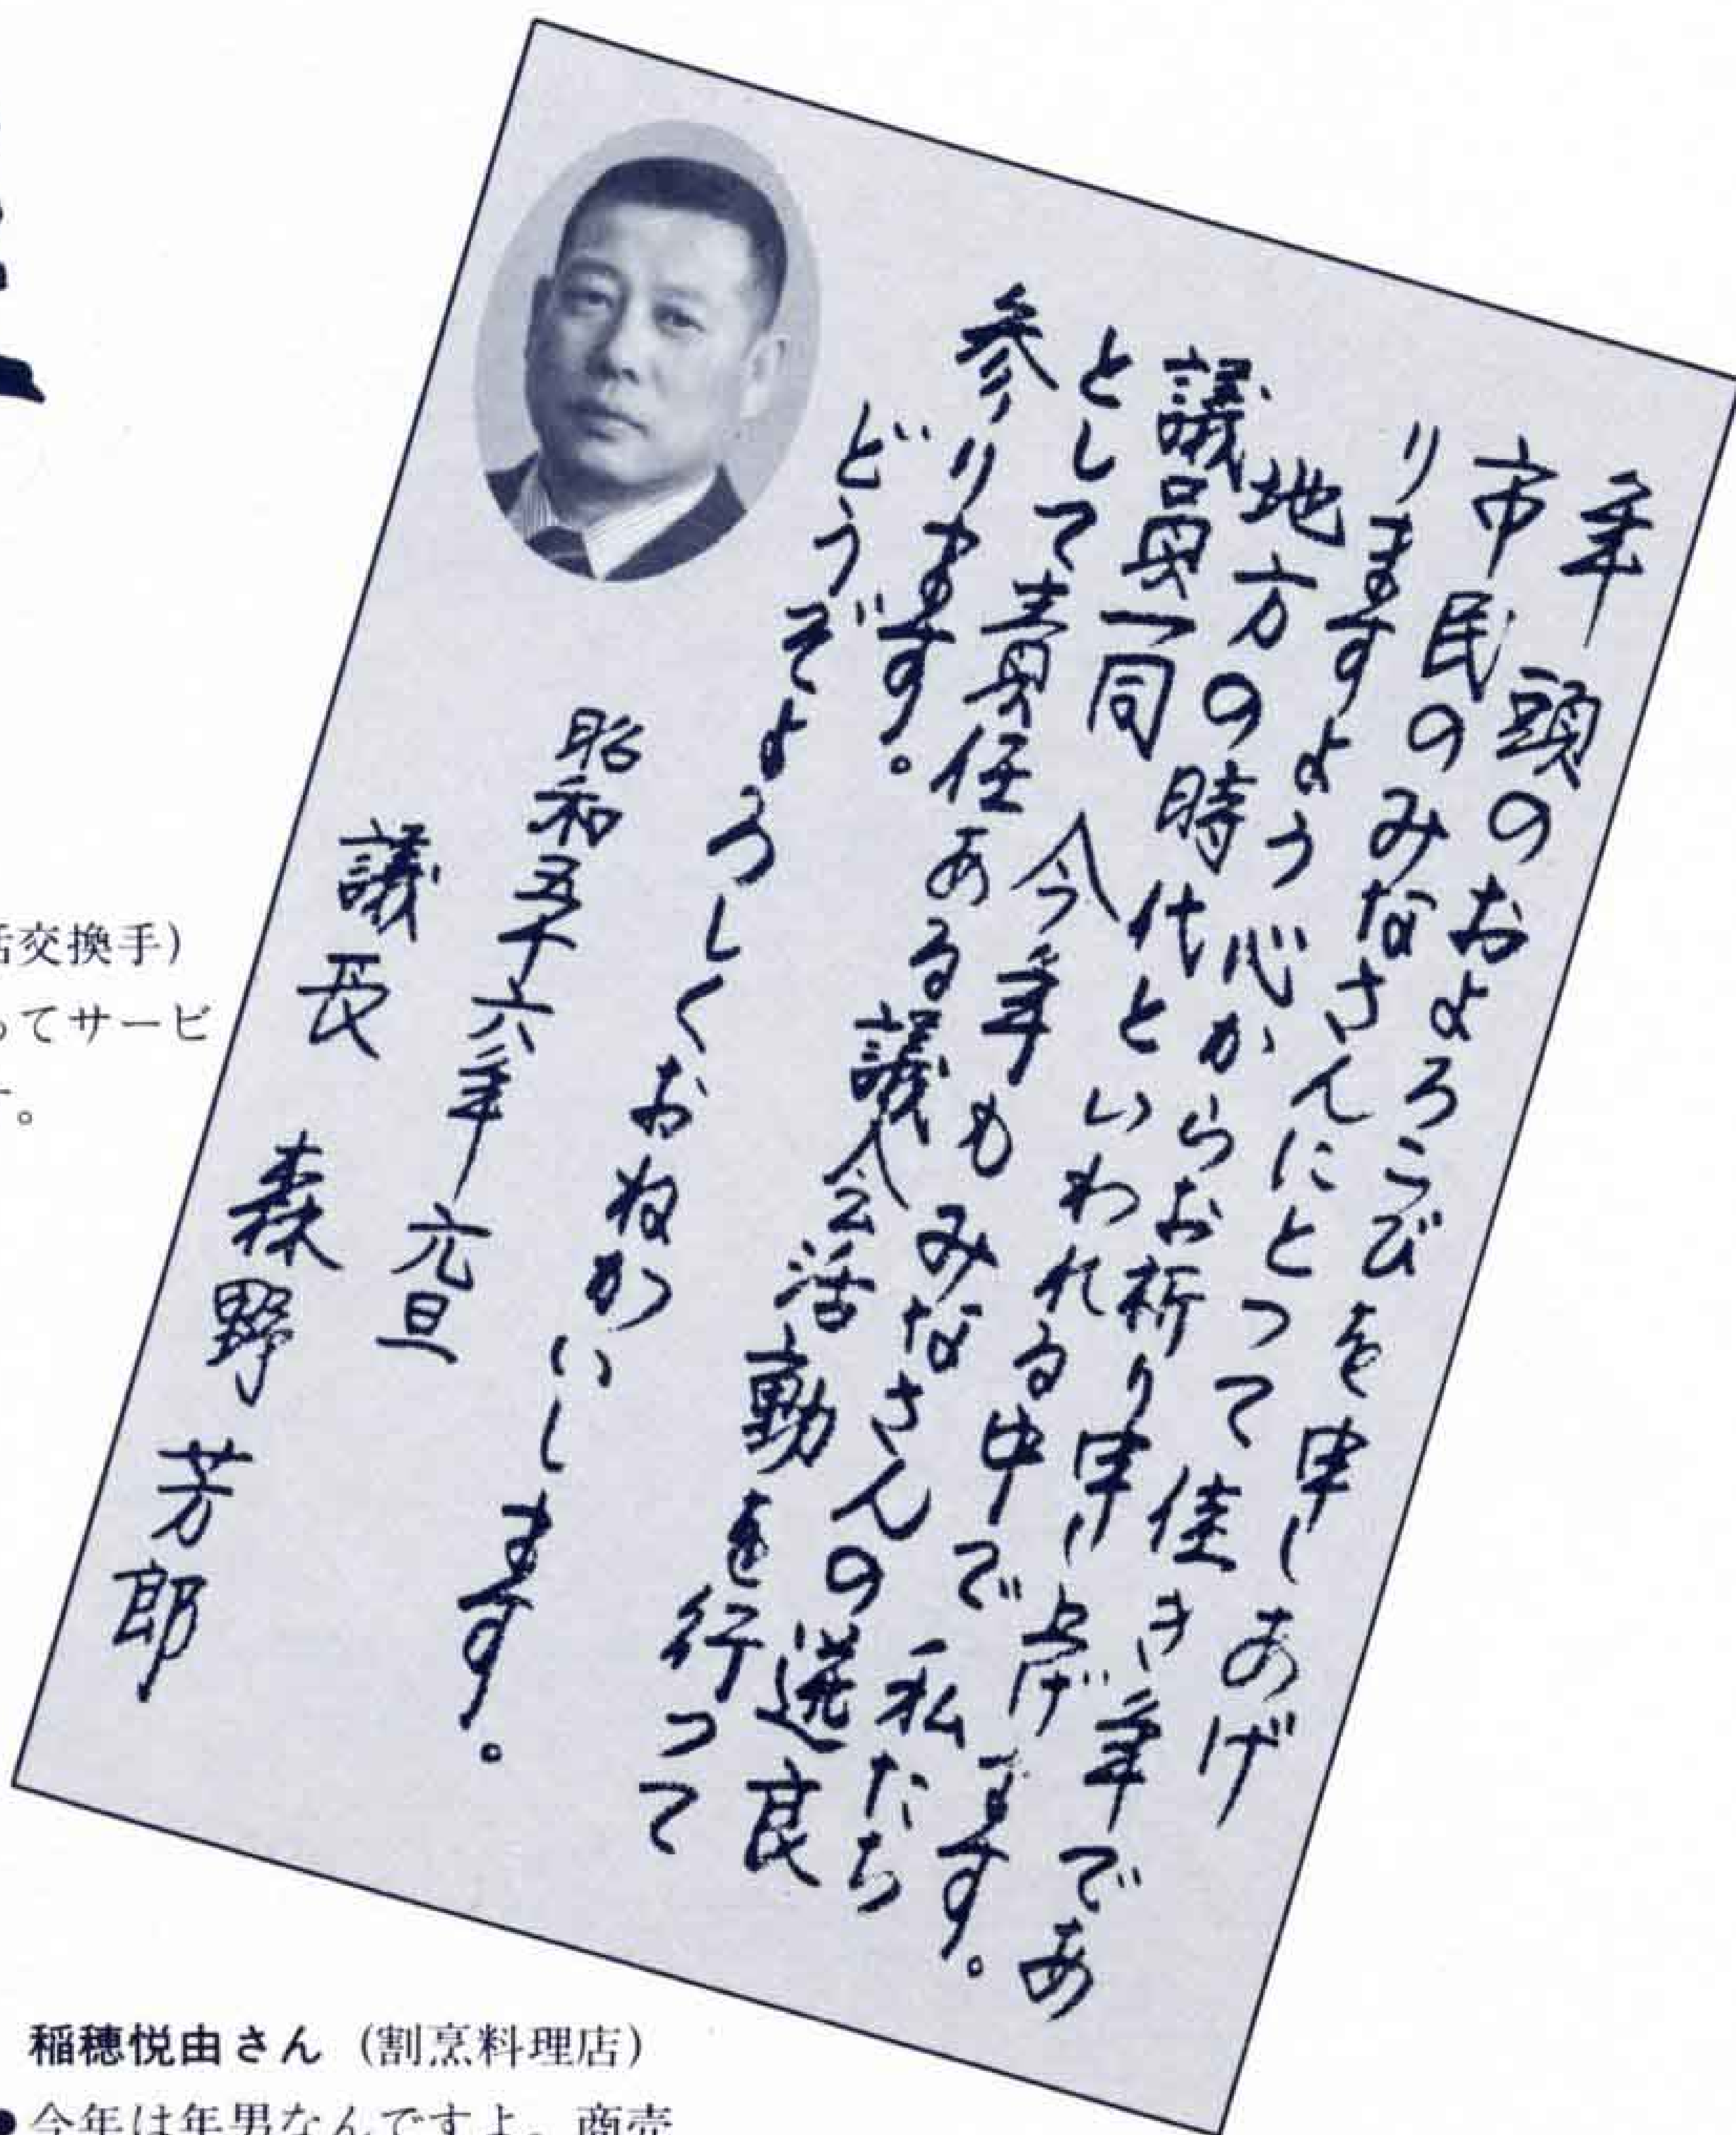 年頭のおよろこびを申しあげ
市民のみなさんにとって佳き年であ
りますよう心からお祈り申し上げます。
地方の時代といわれる中で私たち
議員一同今年もみなさんの選良
として責任ある議会活動を行って
参ります。
どうぞよろしくおねがいします。
昭和五十六年元旦
議長 森野芳郎
話交換手)
ってサービ
す。
稲穂悦由さん (割烹料理店)
●今年は年男なんですよ。商売